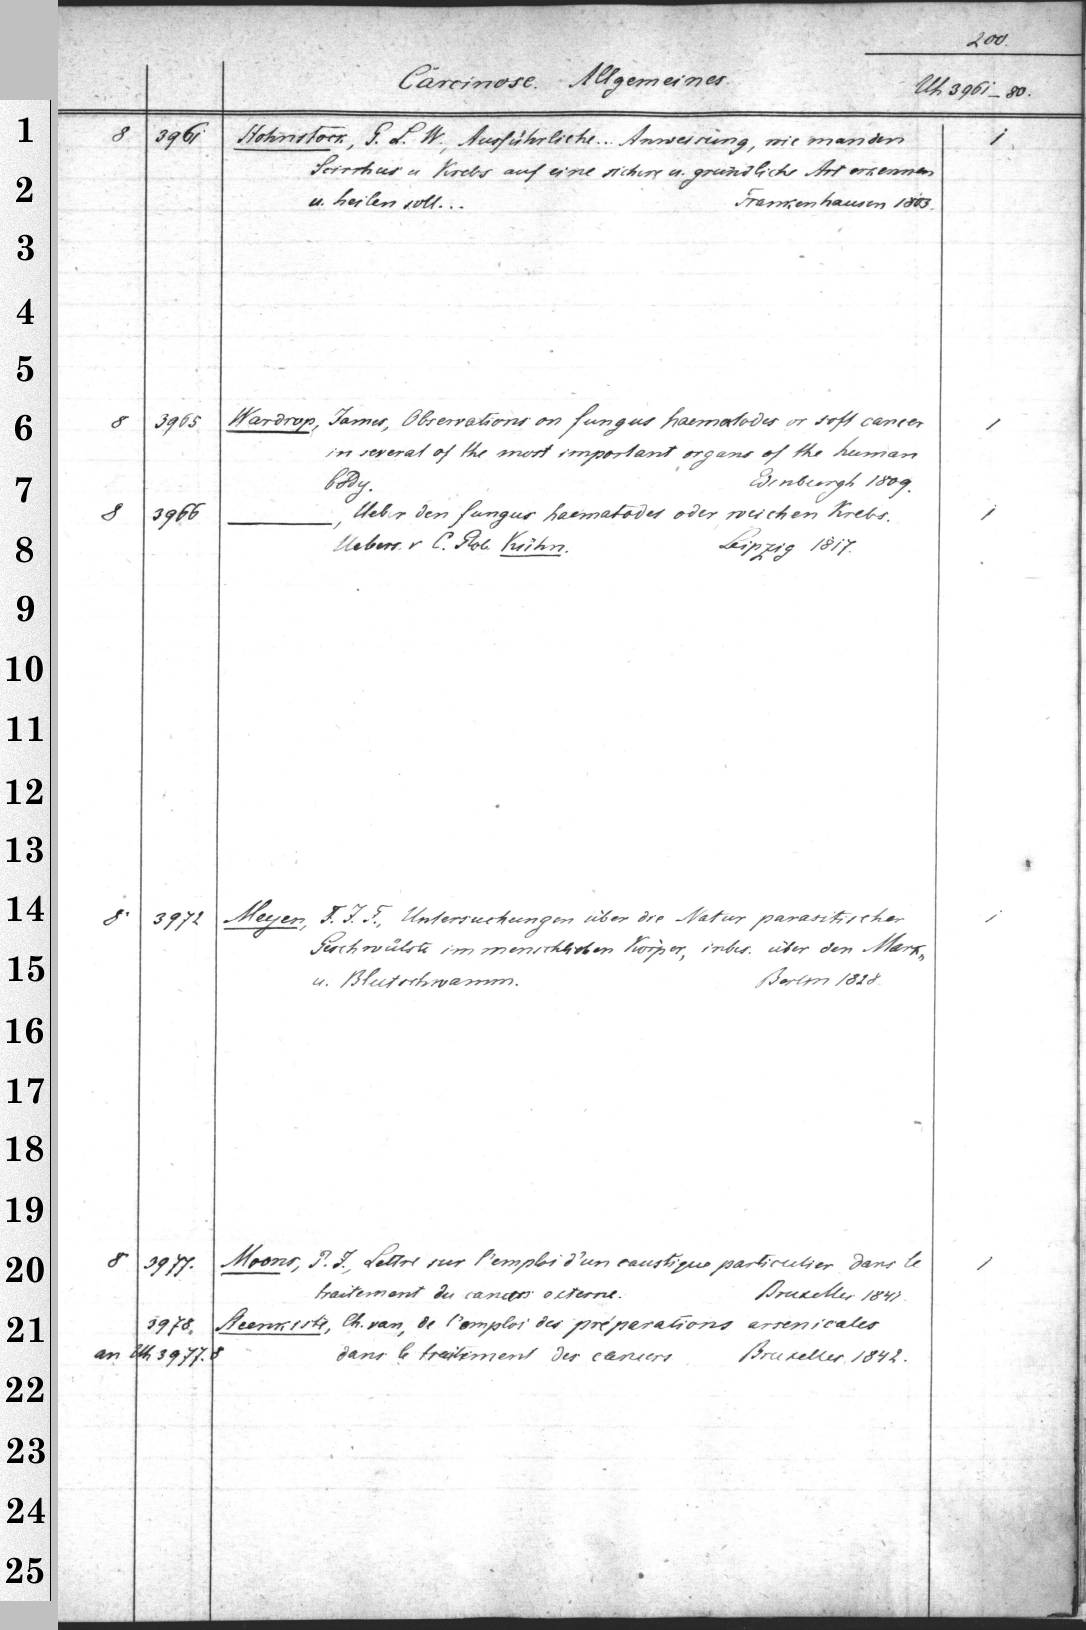 200.
Carcinose. Allgemeines. Uh 3961-80.
1
8 3961 Hohnstock, G. L. W., Ausführliche... Anweisung, wie man den 1
Scirrhus u Krebs auf eine sichere u. gründliche Art erkennen
2
u. heilen soll... Frankenhausen 1803.
3
4
5
6
8 3965 Wardrop, James, Observations on fungus haematodes or soft cancer 1
in several of the most important organs of the human
7
body. Edinburgh 1809.
8 3966 ———, Ueber den fungus haematodes oder weichen Krebs. 1
8
Uebers. v C. Glob. Kühn. Leipzig 1817.
9
10
11
12
13
14
8 3972 Meyen, F. J. F., Untersuchungen über die Natur parasitischer 1
Geschwülste im menschlichen Körper, insbes. über den Mark-
15
u. Blutschwamm. Berlin 1828.
16
17
18
19
20
8 3977. Moons, P. J., Lettre sur l'emploi d'un caustique particulier dans le 1
traitement du cancer externe. Bruxelles 1841.
21
3978. Steenkiste, Ch. van, de l'emploi des préparations arsenicales
an Uh 3977.8 dans le traitement des cancers Bruxelles 1842.
22
23
24
25